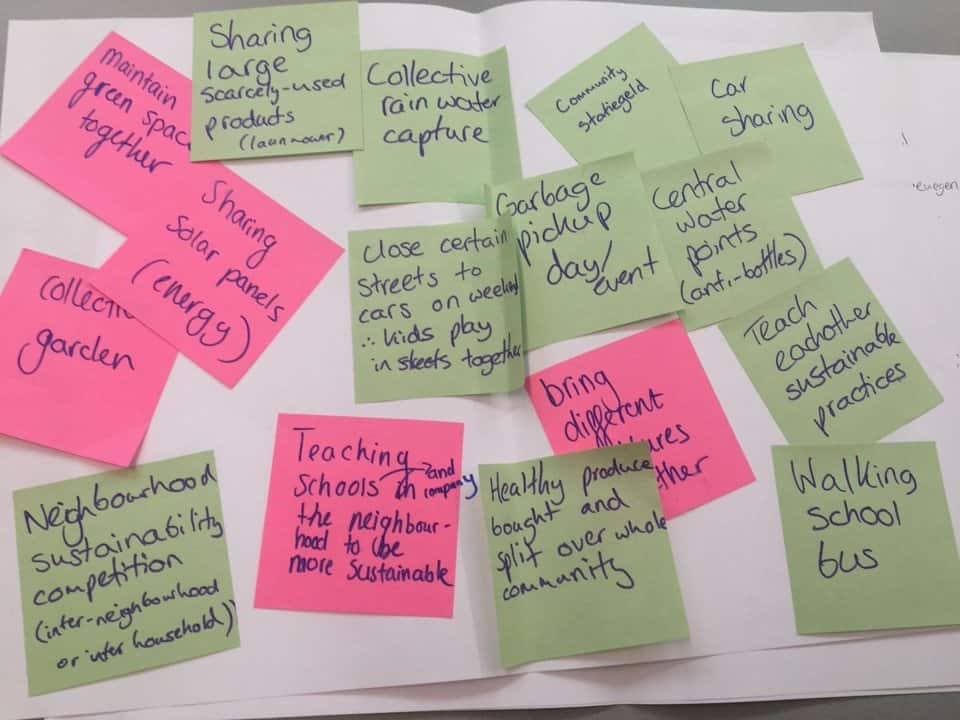 maintain
green spac
together
Sharing
large
scarcely-used
products
(lawnmower)
Collective
rain water
capture
Community
statiegeld
Car
sharing
Sharing
Solar panels
(energy)
Close certain
streets to
cars on weekend
∴ kids play
in streets together
Garbage
pickup
day/
event
Central
water
points
(anti-bottles)
Collecti
garden
Teach
eachother
sustainable
practices
bring
different
Neighbourhood
sustainability
competition
(inter-neighbourhood
or inter household)
Teaching
schools and company in
the neighbour-
hood to be
more sustainable
Healthy produce
bought and
split over whole
community
Walking
school
bus